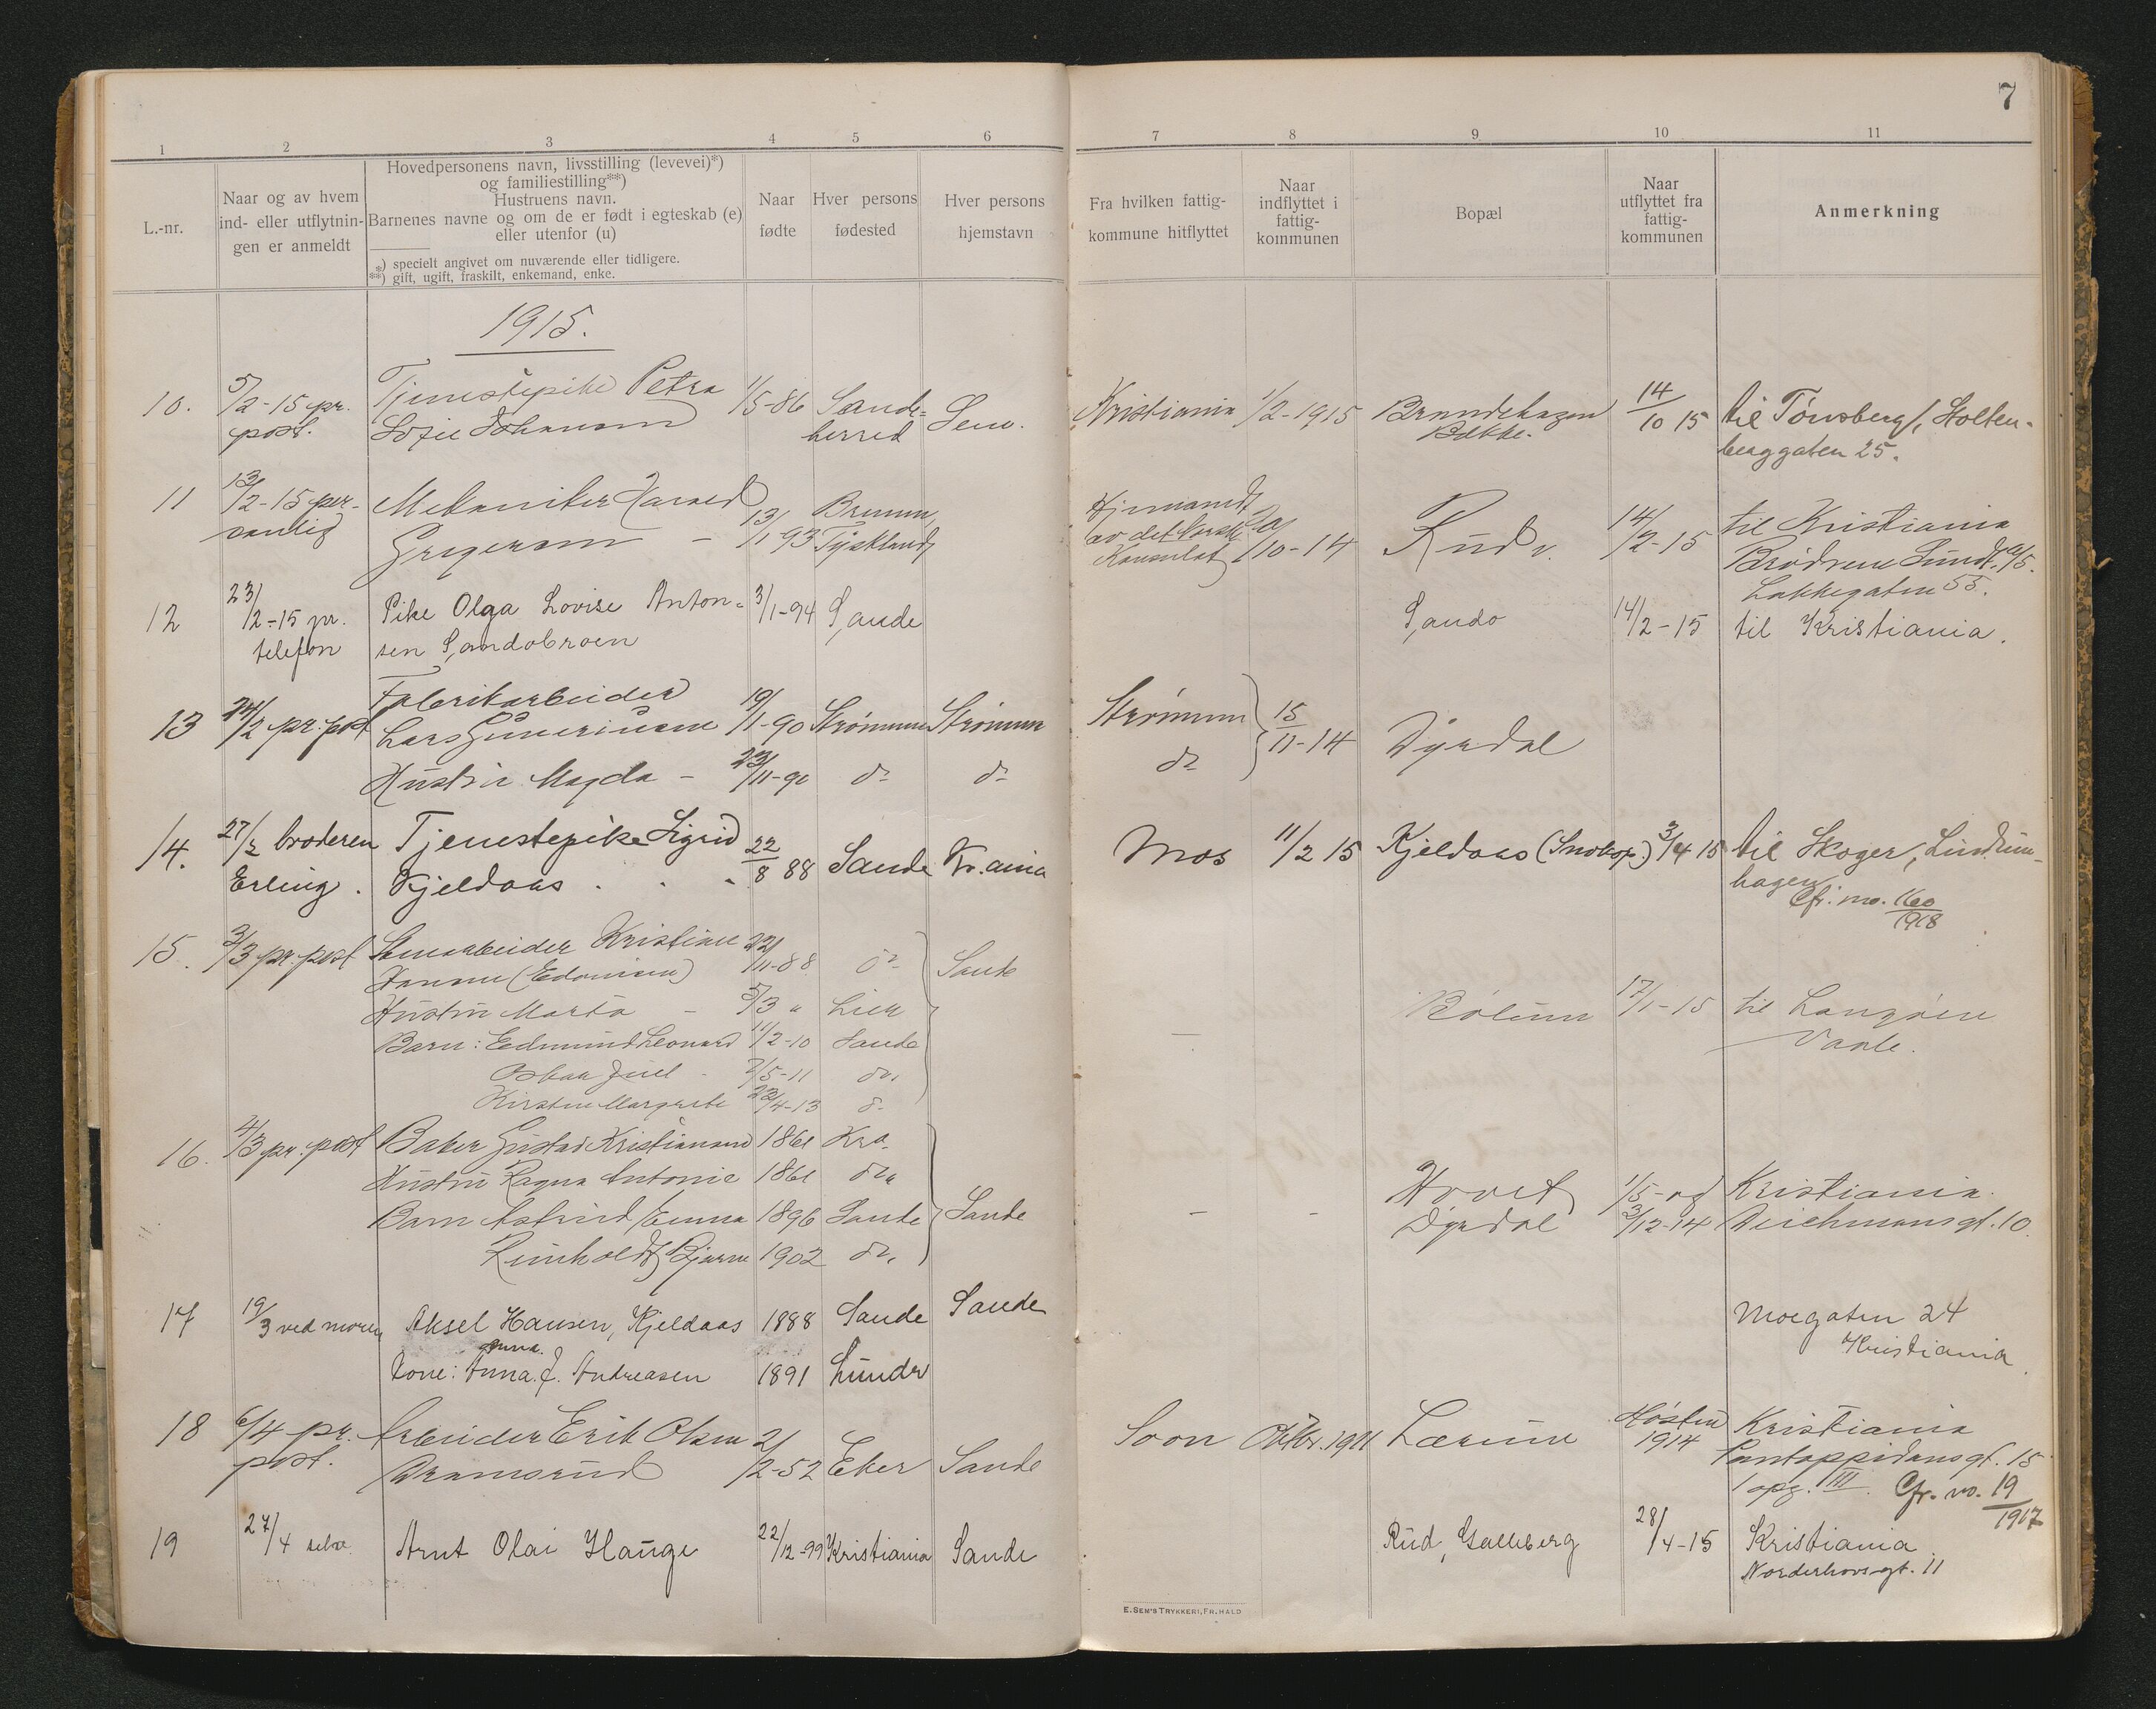 7
1 2 3 4 5 6 7 8 9 10 11
L.-nr.
Naar og av hvem
ind- eller utflytnin-
gen er anmeldt
Hovedpersonens navn, livsstilling (levevei)*)
og familiestilling**)
Hustruens navn.
Barnenes navne og om de er født i egteskab (e)
eller utenfor (u)
*) specielt angivet om nuværende eller tidligere.
**) gift, ugift, fraskilt, enkemand, enke.
Naar
fødte
Hver persons
fødested
Hver persons
hjemstavn
Fra hvilken fattig-
kommune hitflyttet
Naar
indflyttet i
fattig-
kommunen
Bopæl
Naar
utflyttet fra
fattig-
kommunen
Anmerkning
1915.
10. 5/2-15 pr. Tjenestepike Petra 1/5-86 Sande= Sem. Kristiania 1/2-1915 14/10 15 til Tønsberg, Holten-
post. herred Bakke. berggaten 25.
11 13/2-15 per- Mekaniker Harald til Kristiania
sonlig 13/1 93 Tyskland 10-14 Rud v. 14/2-15 Brødrene Sundt a/s.
Lakkegaten 55.
12 23/2-15 pr. Pike Olga Lovise Anton- 3/1-94 Sande Sando 14/2-15 til Kristiania.
telefon sen Sandobroen
13 24/2 pr. post Fabrikarbeider
Lars 19/1-90 Strømmen Strømmen Strømmen 15/11-14 Dyrdal
Hustru Magda - 23/11-90 do do do
14. 27/2 broderen Tjenestepike Sigrid 22/8 88 Sande Kr.ania Mos 11/2 15 Kjeldaas 3/4 15 til Skoger, Lindum-
Erling. Kjeldaas hagen
Cfr. no. 160/1918
15. 3/3 pr. post Stenarbeider Kristian 22/11-88 do Sande
Hansen
Hustru Marta - 5/3 " Lier 17/1-15 til Langøen
Barn: Edmund Leonard 11/2-10 Sande Vaale.
Oskar Juel - 7/5-11 do.
Kirsten Margrete 22/4-13 do
16. 4/3 pr. post Baker Gustav Kristiansen 1861 Kra.
Hustru Ragna Antonie 1861 do Hovet 1/5- og Kristiania
Barn Astrid Emma 1896 Sande Sande - - Dyrdal 3/12-14 Deichmansgt. 10.
Reinholdt Bjarne 1902 do.
17 19/3 ved moren Aksel Hansen, Kjeldaas 1888 Sande Sande Moegaten 24
Kristiania
Anna.
Kone: Anna. J. Andreasen 1891 Lunde
18 6/4 pr. Arbeider Erik Olsen 2/2-52 Eker Sande Soon Oktbr. 1911 Lærum Høsten Kristiania
post. Dramsrud 1914 Pontoppidansgt. 15
1 opg. III. Cfr. no. 19/1917
19 27/4 selv Arnt Olai Hauge 22/12-99 Kristiania Sande Rud, Galleberg 28/4-15 Kristiania
Norderhovsgt. 11
E. SEM'S TRYKKERI, FR. HALD